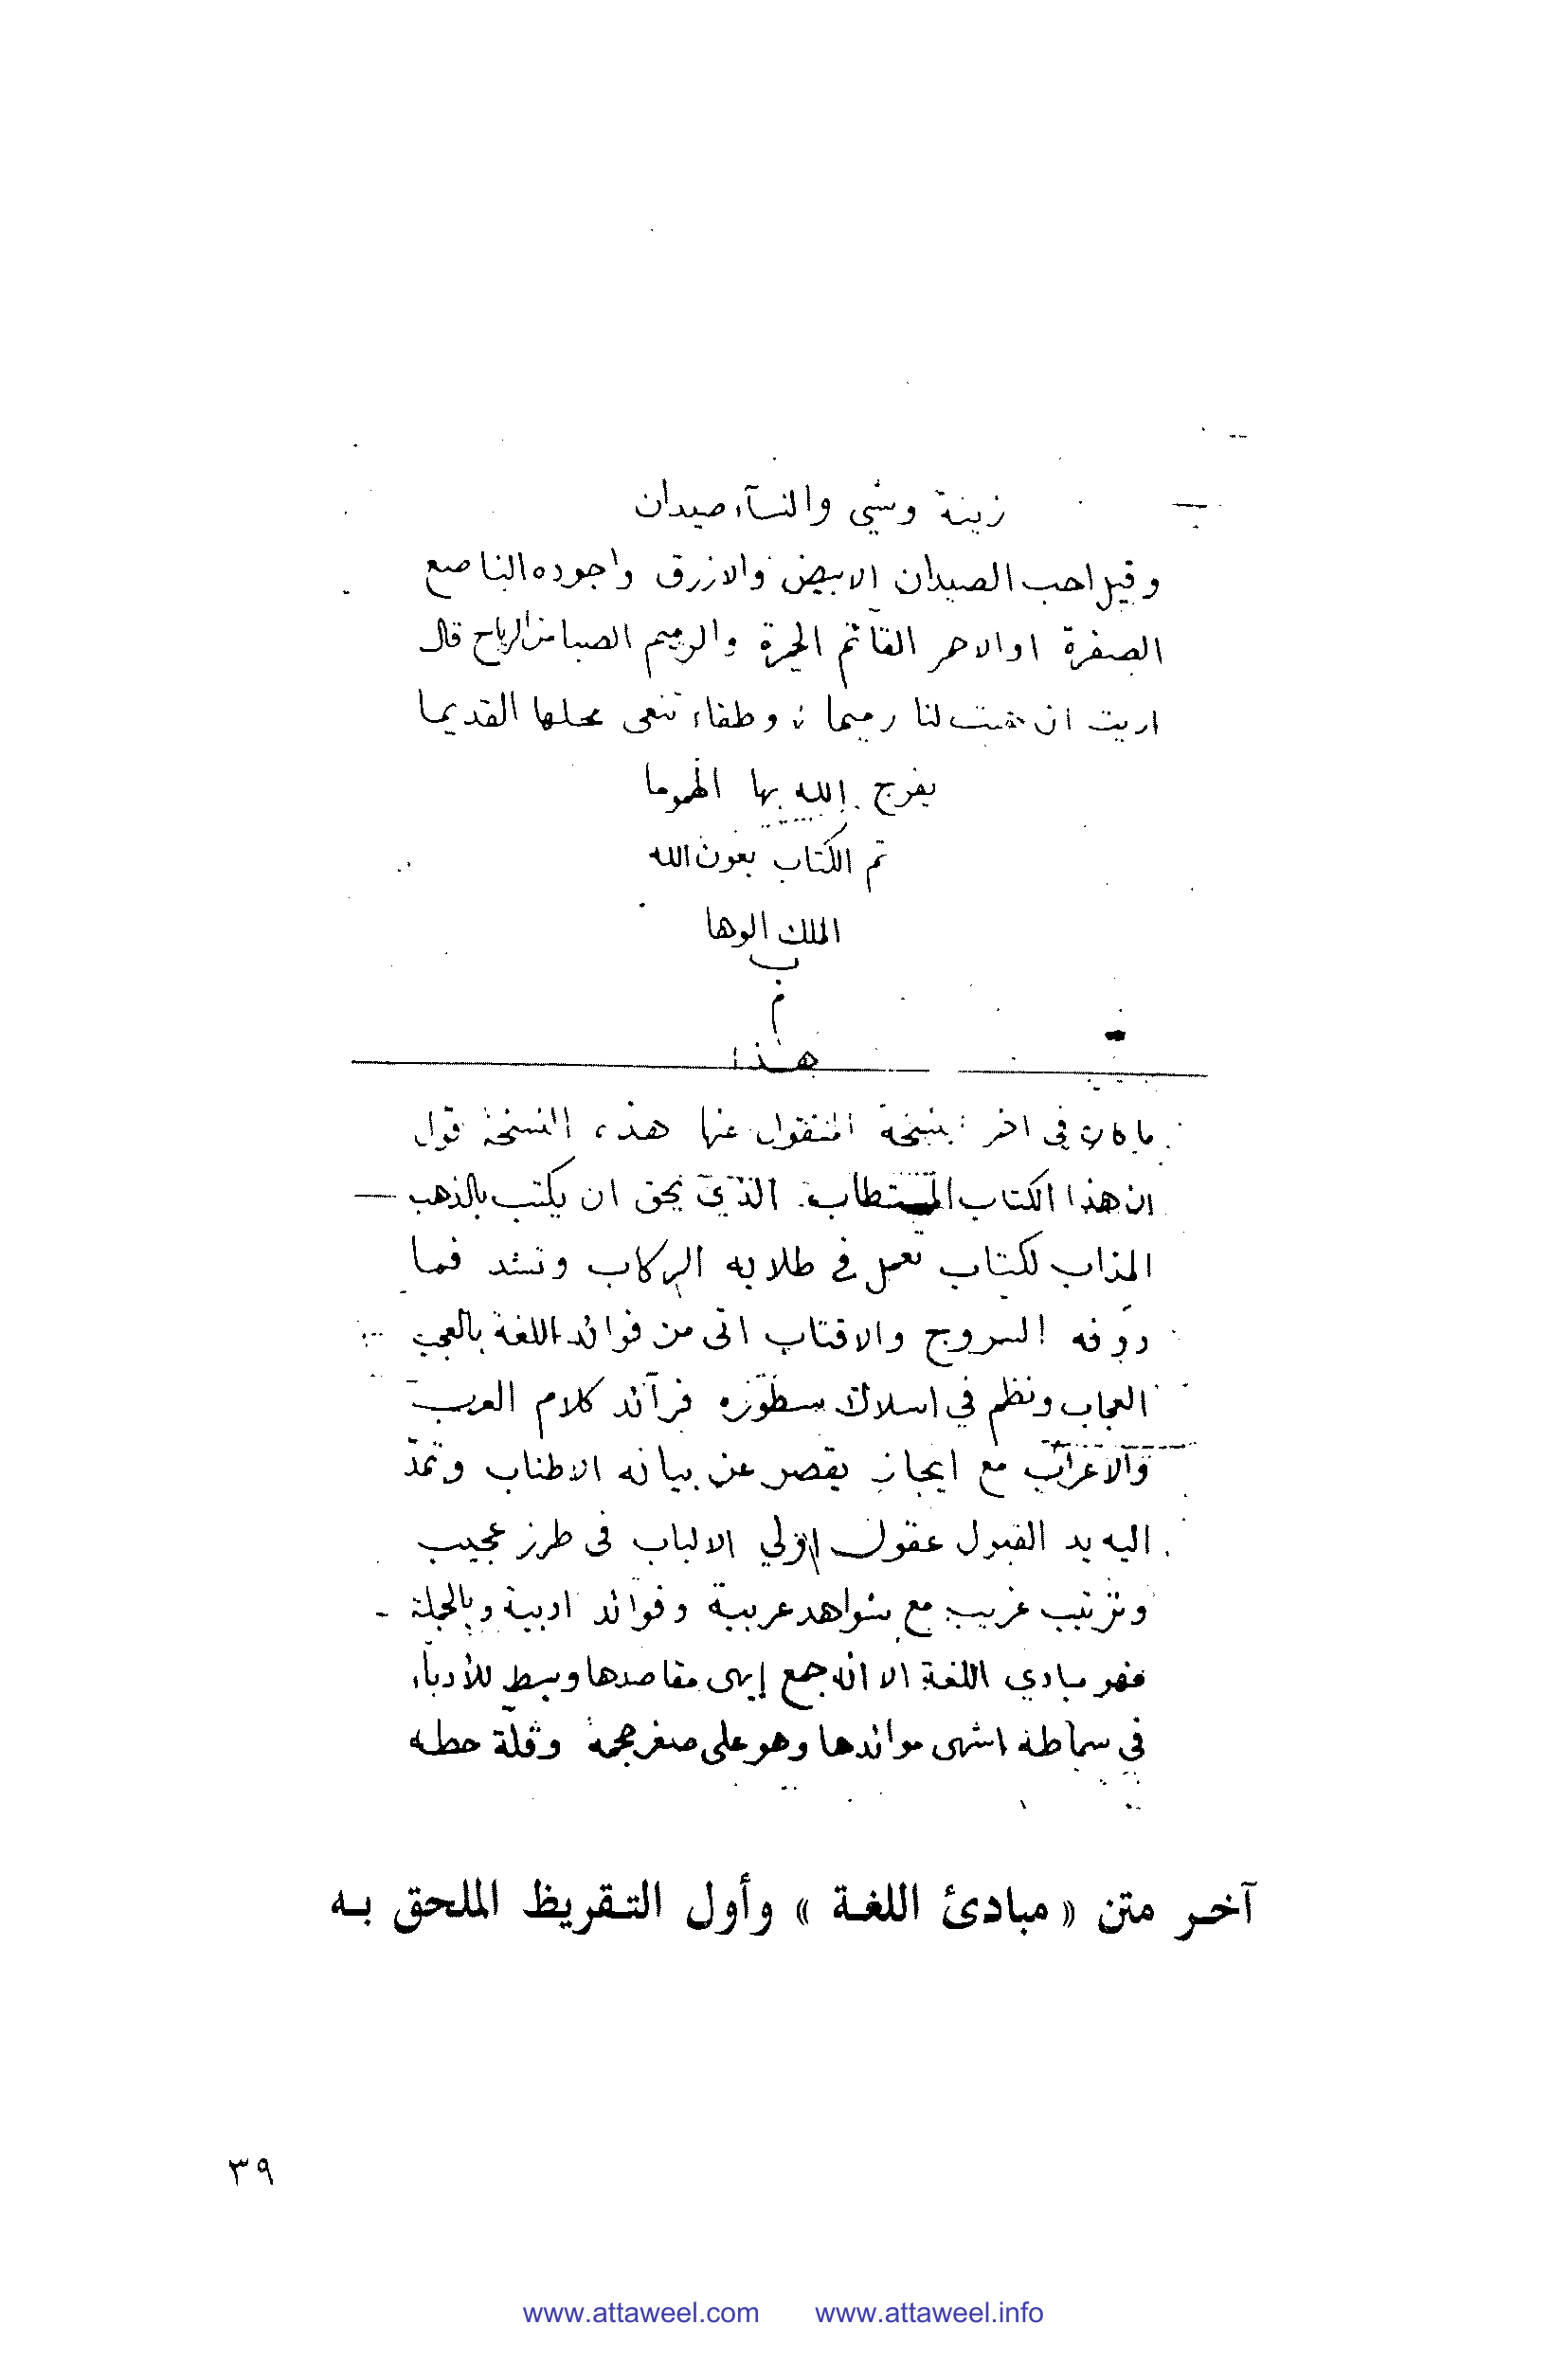 زينة وشي والنسآء صيدان
وقيل احب الصيدان الابيض والازرق واجوده الناصع
الصفرة اوالاحمر القائم الحمرة والرميم الصبا من الرياح قال
اريت ان هبت لنا رميما وطفاء تنعى محلها القديما
يفرج الله بها الهموما
تم الكتاب بعون الله
الملك الوها
ب
م
هذا
ما كان في اخر النسخة المنقول عنها هذه النسخة قول
ان هذا الكتاب المستطاب الذي يحق ان يكتب بالذهب
المذاب لكتاب تعمل في طلابه الركاب وتشد فما
دونه السروج والاقتاب اتى من فوائد اللغة بالعجب
العجاب ونظم في اسلاك سطوره فرآئد كلام العرب
والاعراب مع ايجاز يقصر عن بيانه الاطناب وتمدّ
اليه يد القبول عقول اولي الالباب فى طرز عجيب
وترتيب غريب مع شواهد عربية وفوائد ادبية وبالجملة
فهو مبادي اللغة الا انه جمع إبهى مقاصدها وبسط للأدباء
في سماطه اشهى موائدها وهو على صغر حجمه وقلّة خطه
آخر متن « مبادئ اللغة » وأول التقريظ الملحق به
٣٩
www.attaweel.com www.attaweel.info